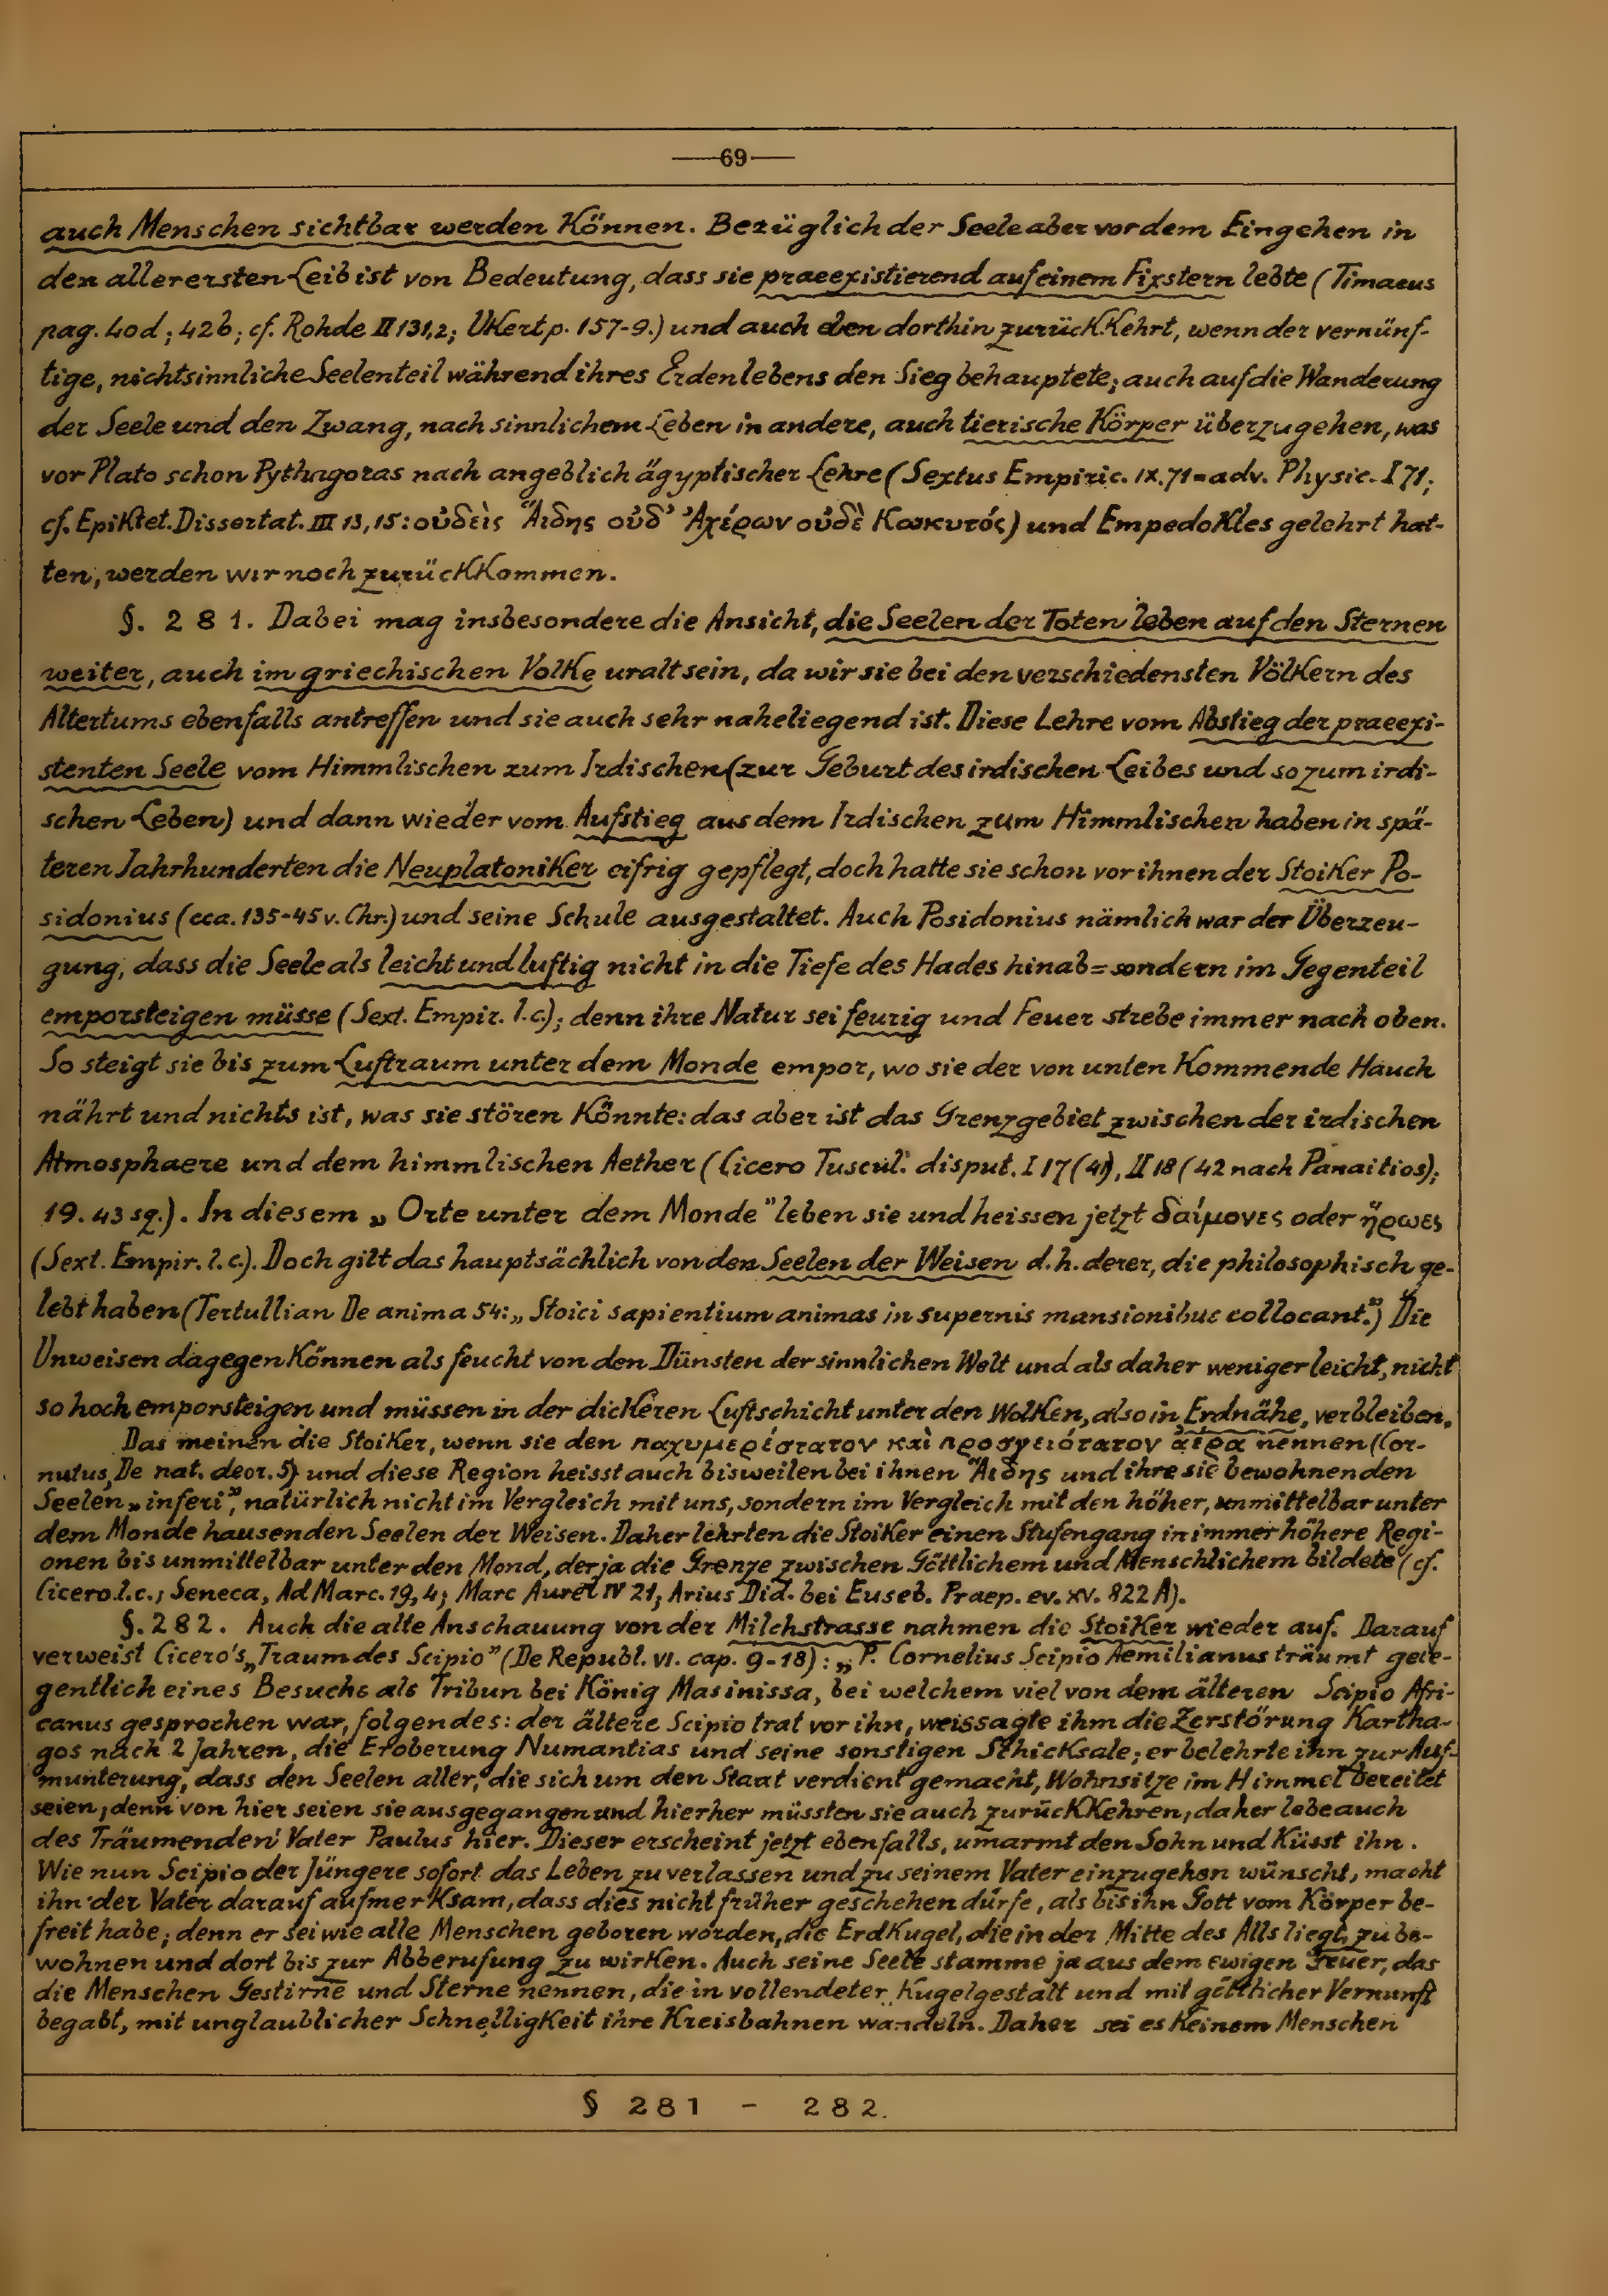 —69—
auch Menschen sichtbar werden können. Bezüglich der Seele aber vor dem Eingehen in
den allerersten Leib ist von Bedeutung, dass sie praeexistierend auf einem Fixstern lebte (Timaeus
pag. 40d; 42b; cf. Rohde II 131,2; Ukert p. 157-9.) und auch eben dorthin zurückkehrt, wenn der vernünf-
tige, nichtsinnliche Seelenteil während ihres Erdenlebens den Sieg behauptete; auch auf die Wanderung
der Seele und den Zwang, nach sinnlichem Leben in andere, auch tierische Körper überzugehen, was
vor Plato schon Pythagoras nach angeblich ägyptischer Lehre (Sextus Empiric. IX. 71 = adv. Physic. I 71;
cf. Epiktet. Dissertat. III 13, 15: οὐδεὶς Ἅιδης οὐδ' Ἀχέρων οὐδὲ Κωκυτός) und Empedokles gelehrt hat-
ten, werden wir noch zurückkommen.
§. 281. Dabei mag insbesondere die Ansicht, die Seelen der Toten leben auf den Sternen
weiter, auch im griechischen Volke uralt sein, da wir sie bei den verschiedensten Völkern des
Altertums ebenfalls antreffen und sie auch sehr naheliegend ist. Diese Lehre vom Abstieg der praeexi-
stenten Seele vom Himmlischen zum Irdischen (zur Geburt des irdischen Leibes und so zum irdi-
schen Leben) und dann wieder vom Aufstieg aus dem Irdischen zum Himmlischen haben in spä-
teren Jahrhunderten die Neuplatoniker eifrig gepflegt, doch hatte sie schon vor ihnen der Stoiker Po-
sidonius (cca. 135-45 v. Chr.) und seine Schule ausgestaltet. Auch Posidonius nämlich war der Überzeu-
gung, dass die Seele als leicht und luftig nicht in die Tiefe des Hades hinab= sondern im Gegenteil
emporsteigen müsse (Sext. Empir. l. c.); denn ihre Natur sei feurig und Feuer strebe immer nach oben.
So steigt sie bis zum Luftraum unter dem Monde empor, wo sie der von unten kommende Hauch
nährt und nichts ist, was sie stören könnte: das aber ist das Grenzgebiet zwischen der irdischen
Atmosphaere und dem himmlischen Aether (Cicero Tuscul. disput. I 17 (41), II 18 (42 nach Panaitios);
19. 43 sq.). In diesem „Orte unter dem Monde" leben sie und heissen jetzt δαίμονες oder ἥρωες
(Sext. Empir. l. c.). Doch gilt das hauptsächlich von den Seelen der Weisen d. h. derer, die philosophisch ge-
lebt haben (Tertullian De anima 54: „Stoici sapientium animas in supernis mansionibus collocant.") Die
Unweisen dagegen können als feucht von den Dünsten der sinnlichen Welt und als daher weniger leicht, nicht
so hoch emporsteigen und müssen in der dickeren Luftschicht unter den Wolken, also in Erdnähe, verbleiben.
Das meinen die Stoiker, wenn sie den παχυμερέστατον καὶ προσγειότατον ἀέρα nennen (Cor-
nutus, De nat. deor. 5) und diese Region heisst auch bisweilen bei ihnen Ἅιδης und ihre sie bewohnenden
Seelen „inferi", natürlich nicht im Vergleich mit uns, sondern im Vergleich mit den höher, unmittelbar unter
dem Monde hausenden Seelen der Weisen. Daher lehrten die Stoiker einen Stufengang in immer höhere Regi-
onen bis unmittelbar unter den Mond, der ja die Grenze zwischen Göttlichem und Menschlichem bildete (cf.
Cicero l. c.; Seneca, Ad Marc. 19, 4; Marc Aurel IV 21; Arius Did. bei Euseb. Praep. ev. XV. 822 A).
§. 282. Auch die alte Anschauung von der Milchstrasse nahmen die Stoiker wieder auf. Darauf
verweist Cicero's „Traum des Scipio" (De Republ. VI. cap. 9-18): „P. Cornelius Scipio Aemilianus träumt gele-
gentlich eines Besuchs als Tribun bei König Masinissa, bei welchem viel von dem älteren Scipio Afri-
canus gesprochen war, folgendes: der ältere Scipio trat vor ihn, weissagte ihm die Zerstörung Kartha-
gos nach 2 Jahren, die Eroberung Numantias und seine sonstigen Schicksale; er belehrte ihn zur Auf-
munterung, dass den Seelen aller, die sich um den Staat verdient gemacht, Wohnsitze im Himmel bereitet
seien; denn von hier seien sie ausgegangen und hierher müssten sie auch zurückkehren, daher lebe auch
des Träumenden Vater Paulus hier. Dieser erscheint jetzt ebenfalls, umarmt den Sohn und küsst ihn.
Wie nun Scipio der Jüngere sofort das Leben zu verlassen und zu seinem Vater einzugehen wünscht, macht
ihn der Vater darauf aufmerksam, dass dies nicht früher geschehen dürfe, als bis ihn Gott vom Körper be-
freit habe; denn er sei wie alle Menschen geboren worden, die Erdkugel, die in der Mitte des Alls liegt, zu be-
wohnen und dort bis zur Abberufung zu wirken. Auch seine Seele stamme ja aus dem ewigen Feuer, das
die Menschen Gestirne und Sterne nennen, die in vollendeter Kugelgestalt und mit göttlicher Vernunft
begabt, mit unglaublicher Schnelligkeit ihre Kreisbahnen wandeln. Daher sei es keinem Menschen
§ 281 - 282.